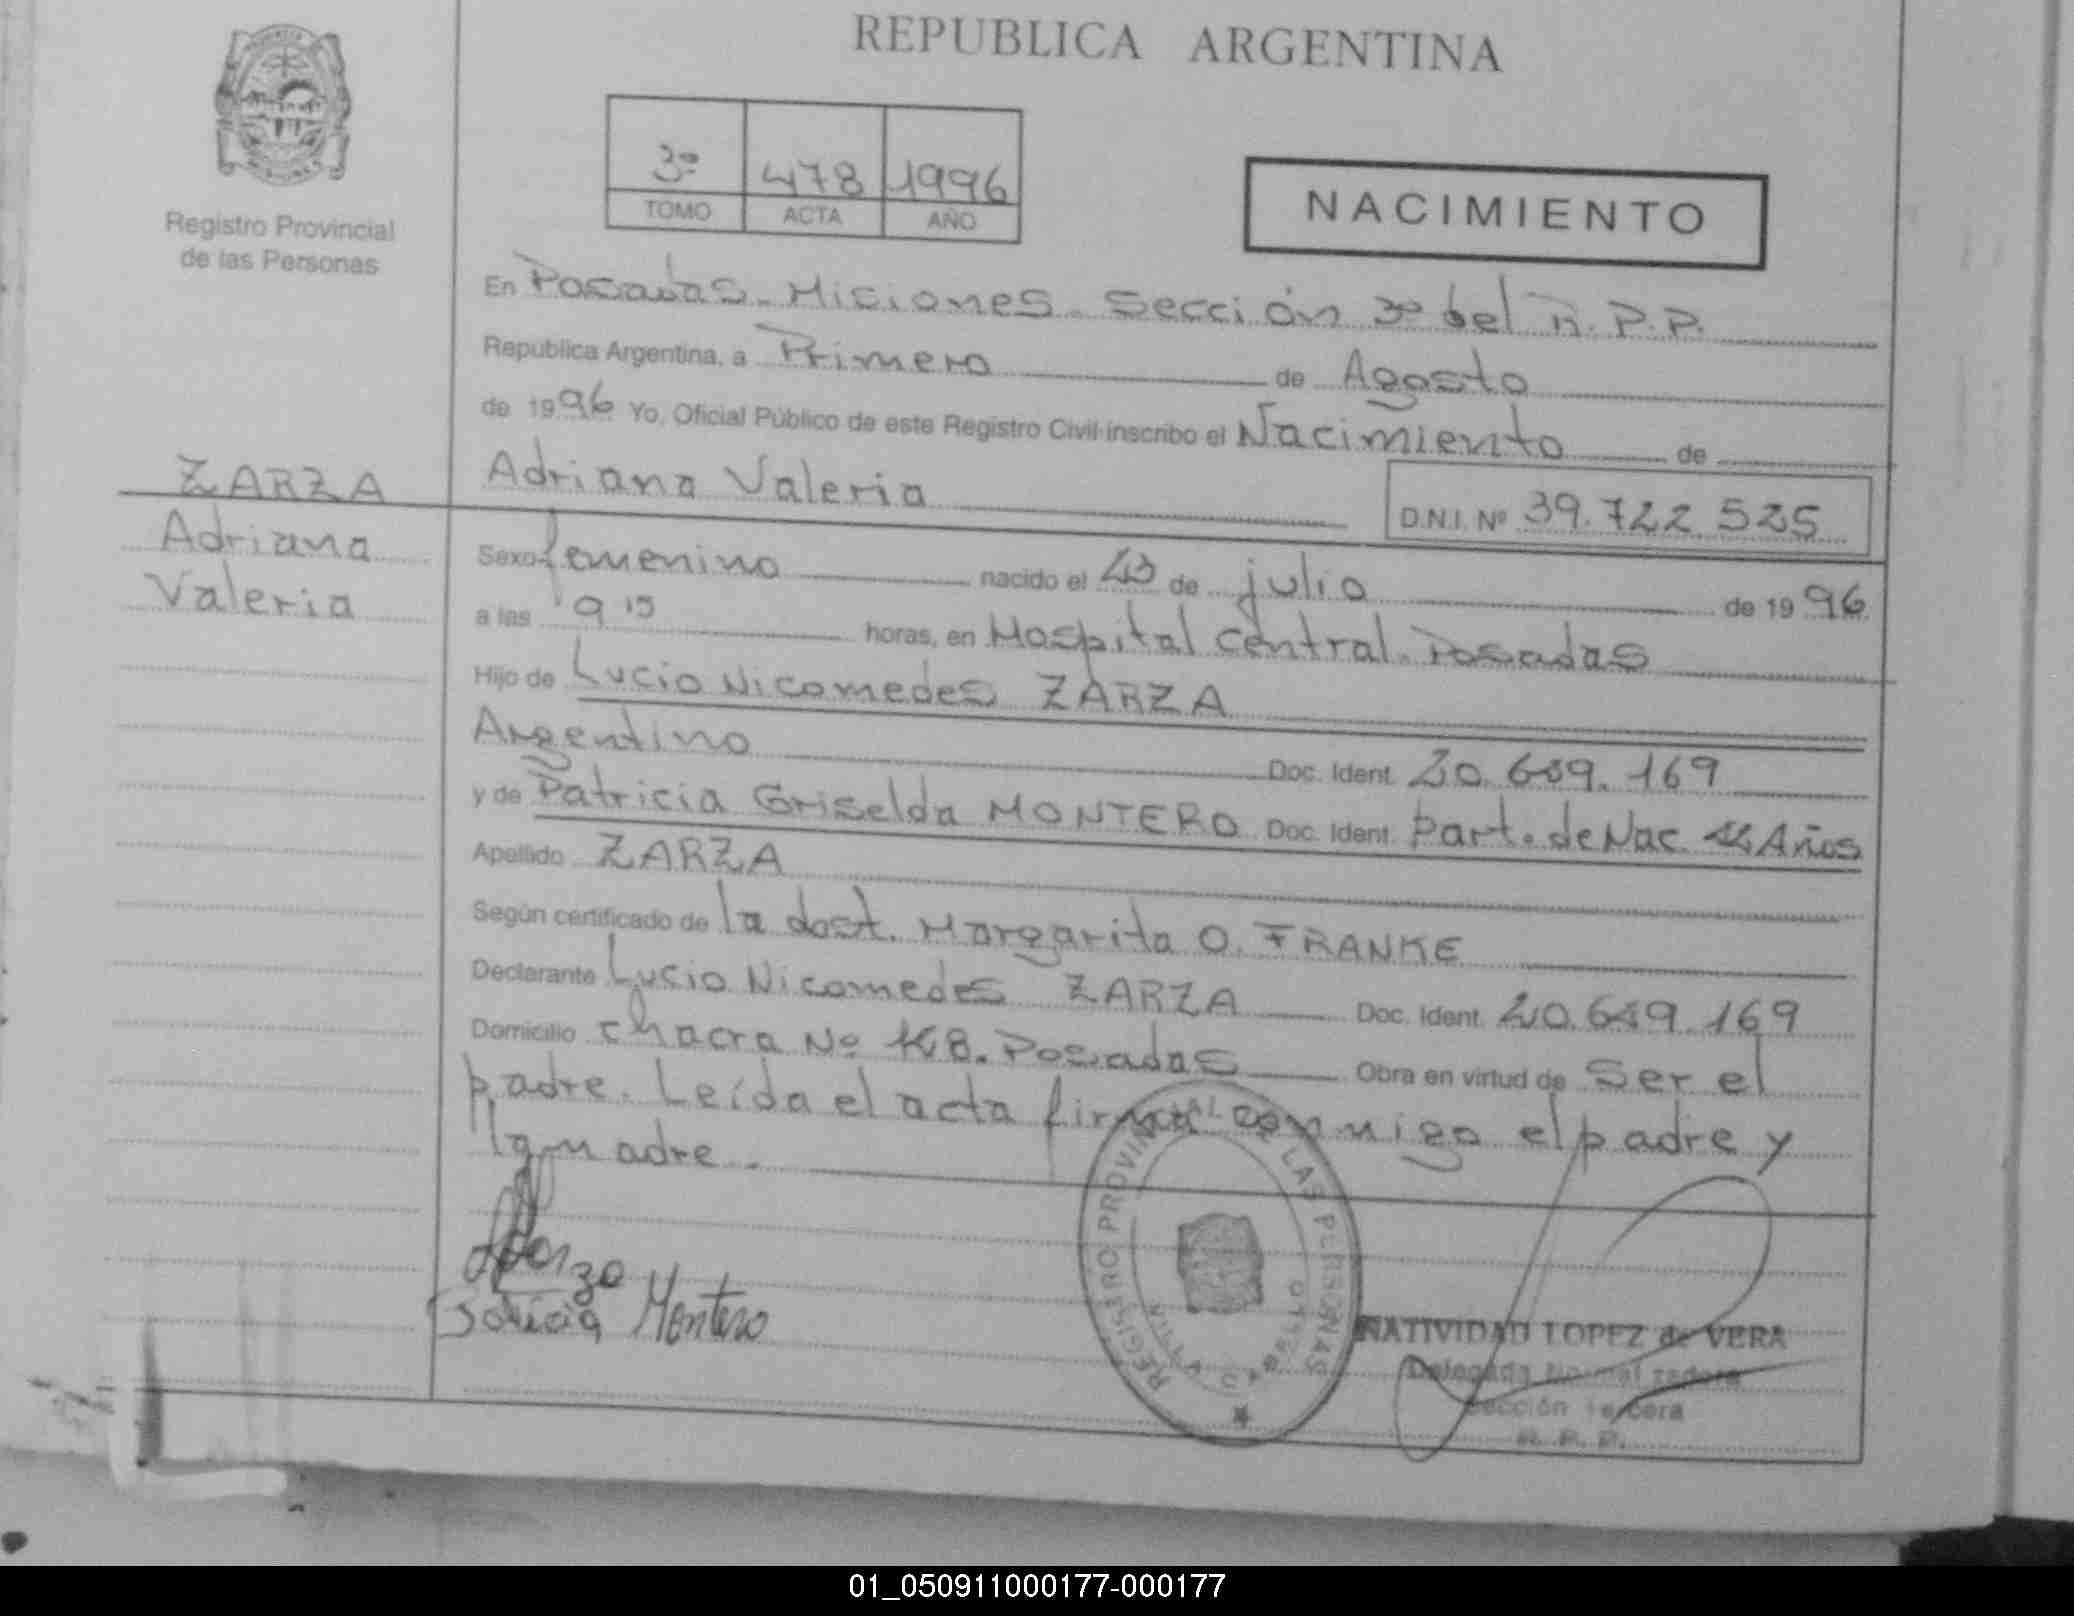 REPUBLICA ARGENTINA
3º 478 1996
TOMO ACTA AÑO
NACIMIENTO
Registro Provincial
de las Personas
En Posadas. Misiones. Sección 3º del R.P.P.
República Argentina, a Primero de Agosto
de 1996 Yo, Oficial Público de este Registro Civil inscribo el Nacimiento de
Adriana Valeria D.N.I. Nº 39.722.525
ZARZA
Adriana
Valeria
Sexo femenino nacido el de julio de 1996
a las 9 15 horas, en Hospital Central. Posadas
Hijo de Lucio Nicomedes ZARZA
Argentino Doc. Ident. 20.689.169
y de Patricia Griselda MONTERO Doc. Ident. Part. de Nac. Años
Apellido ZARZA
Según certificado de la doct. Margarita O. FRANKE
Declarante Lucio Nicomedes ZARZA Doc. Ident. 20.689.169
Domicilio Chacra Nº Posadas Obra en virtud de Ser el
padre. Leída el acta firma conmigo el padre y
la madre.
Montero
REGISTRO PROVINCIAL DE LAS PERSONAS
NATIVIDAD LOPEZ de VERA
Delegada Normalizadora
Sección Tercera
R. P. P.
01_050911000177-000177